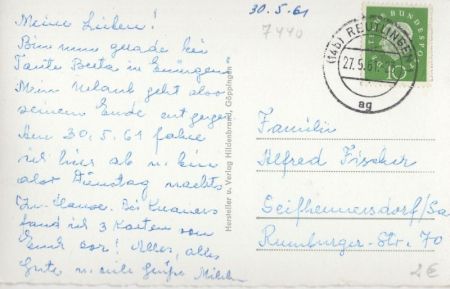 Meine Lieben!
Bin nun gerade bei
Tante Berta in Eningen.
Mein Urlaub geht also
seinem Ende entgegen
Am 30.5.61 fahre
ich hier ab u. bin
also Dienstag nachts
zu Hause. Bei
fand ich 3 Karten von
Euch vor! Alles, alles
Gute u. viele Grüße
30.5.61
7440
(14b) REUTLINGEN
27.5.61
ag
DEUTSCHE BUNDESPOST
10
Hersteller u. Verlag Hildenbrand, Göppingen
Familie
Alfred Fischer
Seifhennersdorf/Sa
Rumburger-Str. 70
2€